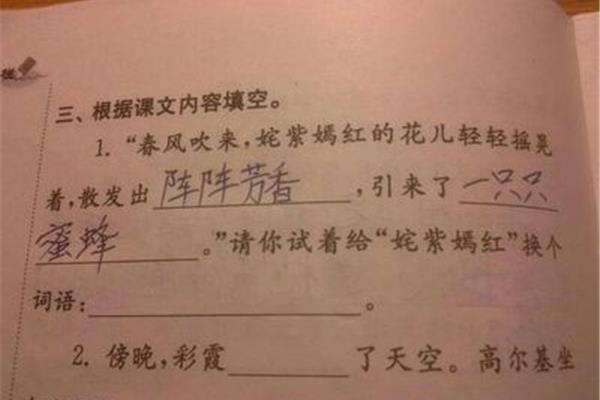 三、根据课文内容填空。
1. “春风吹来，姹紫嫣红的花儿轻轻摇晃
着，散发出阵阵芳香，引来了一只只
蜜蜂。”请你试着给“姹紫嫣红”换个
词语：。
2. 傍晚，彩霞了天空。高尔基坐